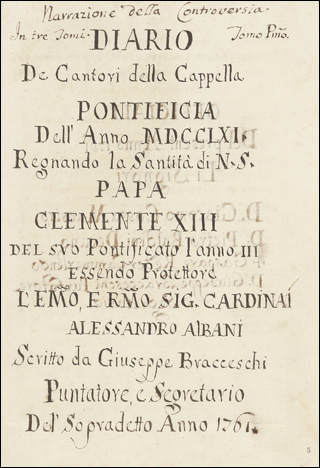 Narrazione della Controversia.
In tre Tomi. Tomo Pmo.
DIARIO
De Cantori della Cappella
PONTIFICIA
Dell' Anno MDCCLXI.
Regnando la Santità di N. S.
PAPA
CLEMENTE XIII
DEL SVO Pontificato l'anno III
Essendo Protettore
L'EMO, E RMO SIG. CARDINAL
ALESSANDRO AlBANI
Scritto da Giuseppe Bracceschi
Puntatore, e Segretario
Del' Sopradetto Anno 1761.